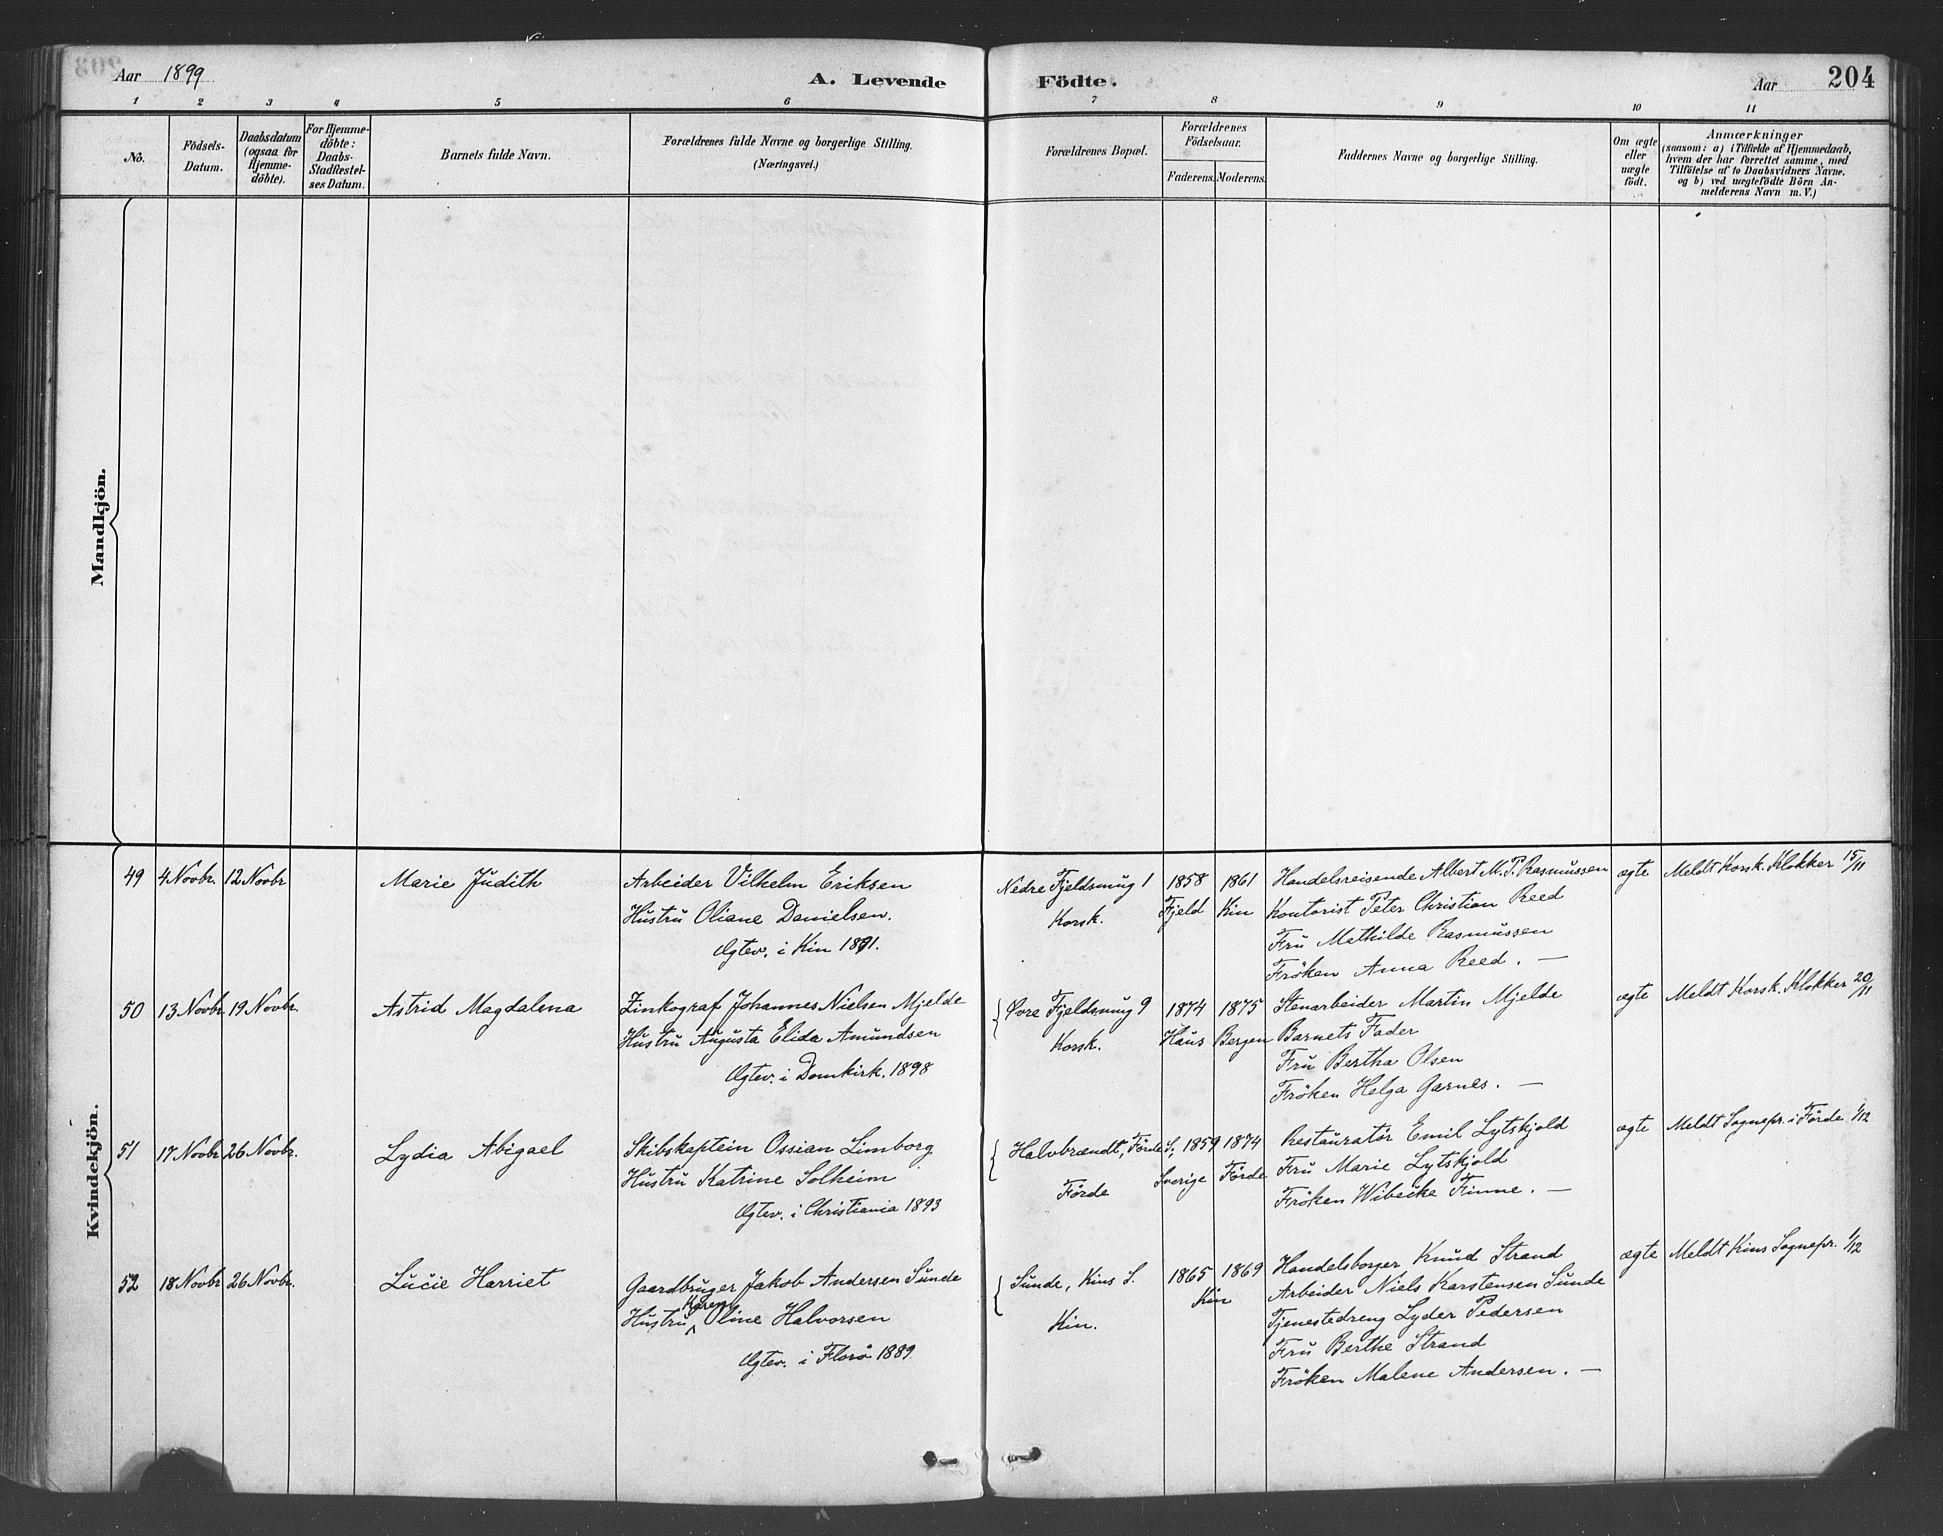 Aar 1899
A. Levende Födte.
Aar
204
1 2 3 4 5 6 7 8 9 10 11
Nô.
Födsels-Datum.
Daabsdatum (ogsaa for Hjemme-döbte).
For Hjemme-döbte: Daabs-Stadfæstel-ses Datum.
Barnets fulde Navn.
Forældrenes fulde Navne og borgerlige Stilling.
(Næringsvei.)
Forældrenes Bopæl.
Forældrenes Födselsaar.
Faderens. Moderens.
Faddernes Navne og borgerlige Stilling.
Om ægte eller uægte födt.
Anmærkninger
(saasom: a) i Tilfælde af Hjemmedaab,
hvem der har forrettet samme, med
Tilföielse af to Daabsvidners Navne.
og b) ved uægtefödte Börn An-
melderens Navn m. V.)
Mandkjön.
Kvindekjön.
49 4 Novbr. 12 Novbr Marie Judith
Arbeider Vilhelm Eriksen
Hustru Oliane Danielsen.
Ægtev. i Kin 1891.
Nedre Fjeldsmug 1
Korsk.
1858 1861
Fjeld Kin
Handelsreisende Albert M. P. Rasmussen
Kontorist Peter Christian Reed
Fru Mathilde Rasmussen
Fröken Anna Reed. —
ægte Meldt Korsk. Klokker 15/11
50 13 Novbr 19 Novbr. Astrid Magdalena
Zinkograf Johannes Nielsen Mjelde
Hustru Augusta Elida Amundsen
Ægtev. i Domkirk. 1898
Øvre Fjeldsmug 9
Korsk.
1874 1875
Haus Bergen
Stenarbeider Martin Mjelde
Barnets Fader
Fru Bertha Olsen
Fröken Helga Garnes. —
ægte Meldt Korsk. Klokker 20/11
51 17 Novbr 26 Novbr. Lydia Abigael
Skibskaptein Ossian Limborg
Hustru Katrine Solheim
Ægtev. i Christiania 1893
Halvbrændt, Förde S.
Förde
1859 1874
Sverige Förde
Restauratør Emil Lytskjold
Fru Marie Lytskjold
Fröken Wibecke Finne. —
ægte Meldt Sognepr. i Förde 1/12
52 18 Novbr 26 Novbr. Lucie Harriet
Gaardbruger Jakob Andersen Sunde
Hustru Karen Oline Halvorsen
Ægtev. i Florö 1889.
Sunde, Kins S.
Kin.
1865 1869
Kin
Handelsborger Knud Strand
Arbeider Niels Karstensen Sunde
Tjenestedreng Lyder Pedersen
Fru Berthe Strand
Fröken Malene Andersen. —
ægte Meldt Kins Sognepr. 1/12